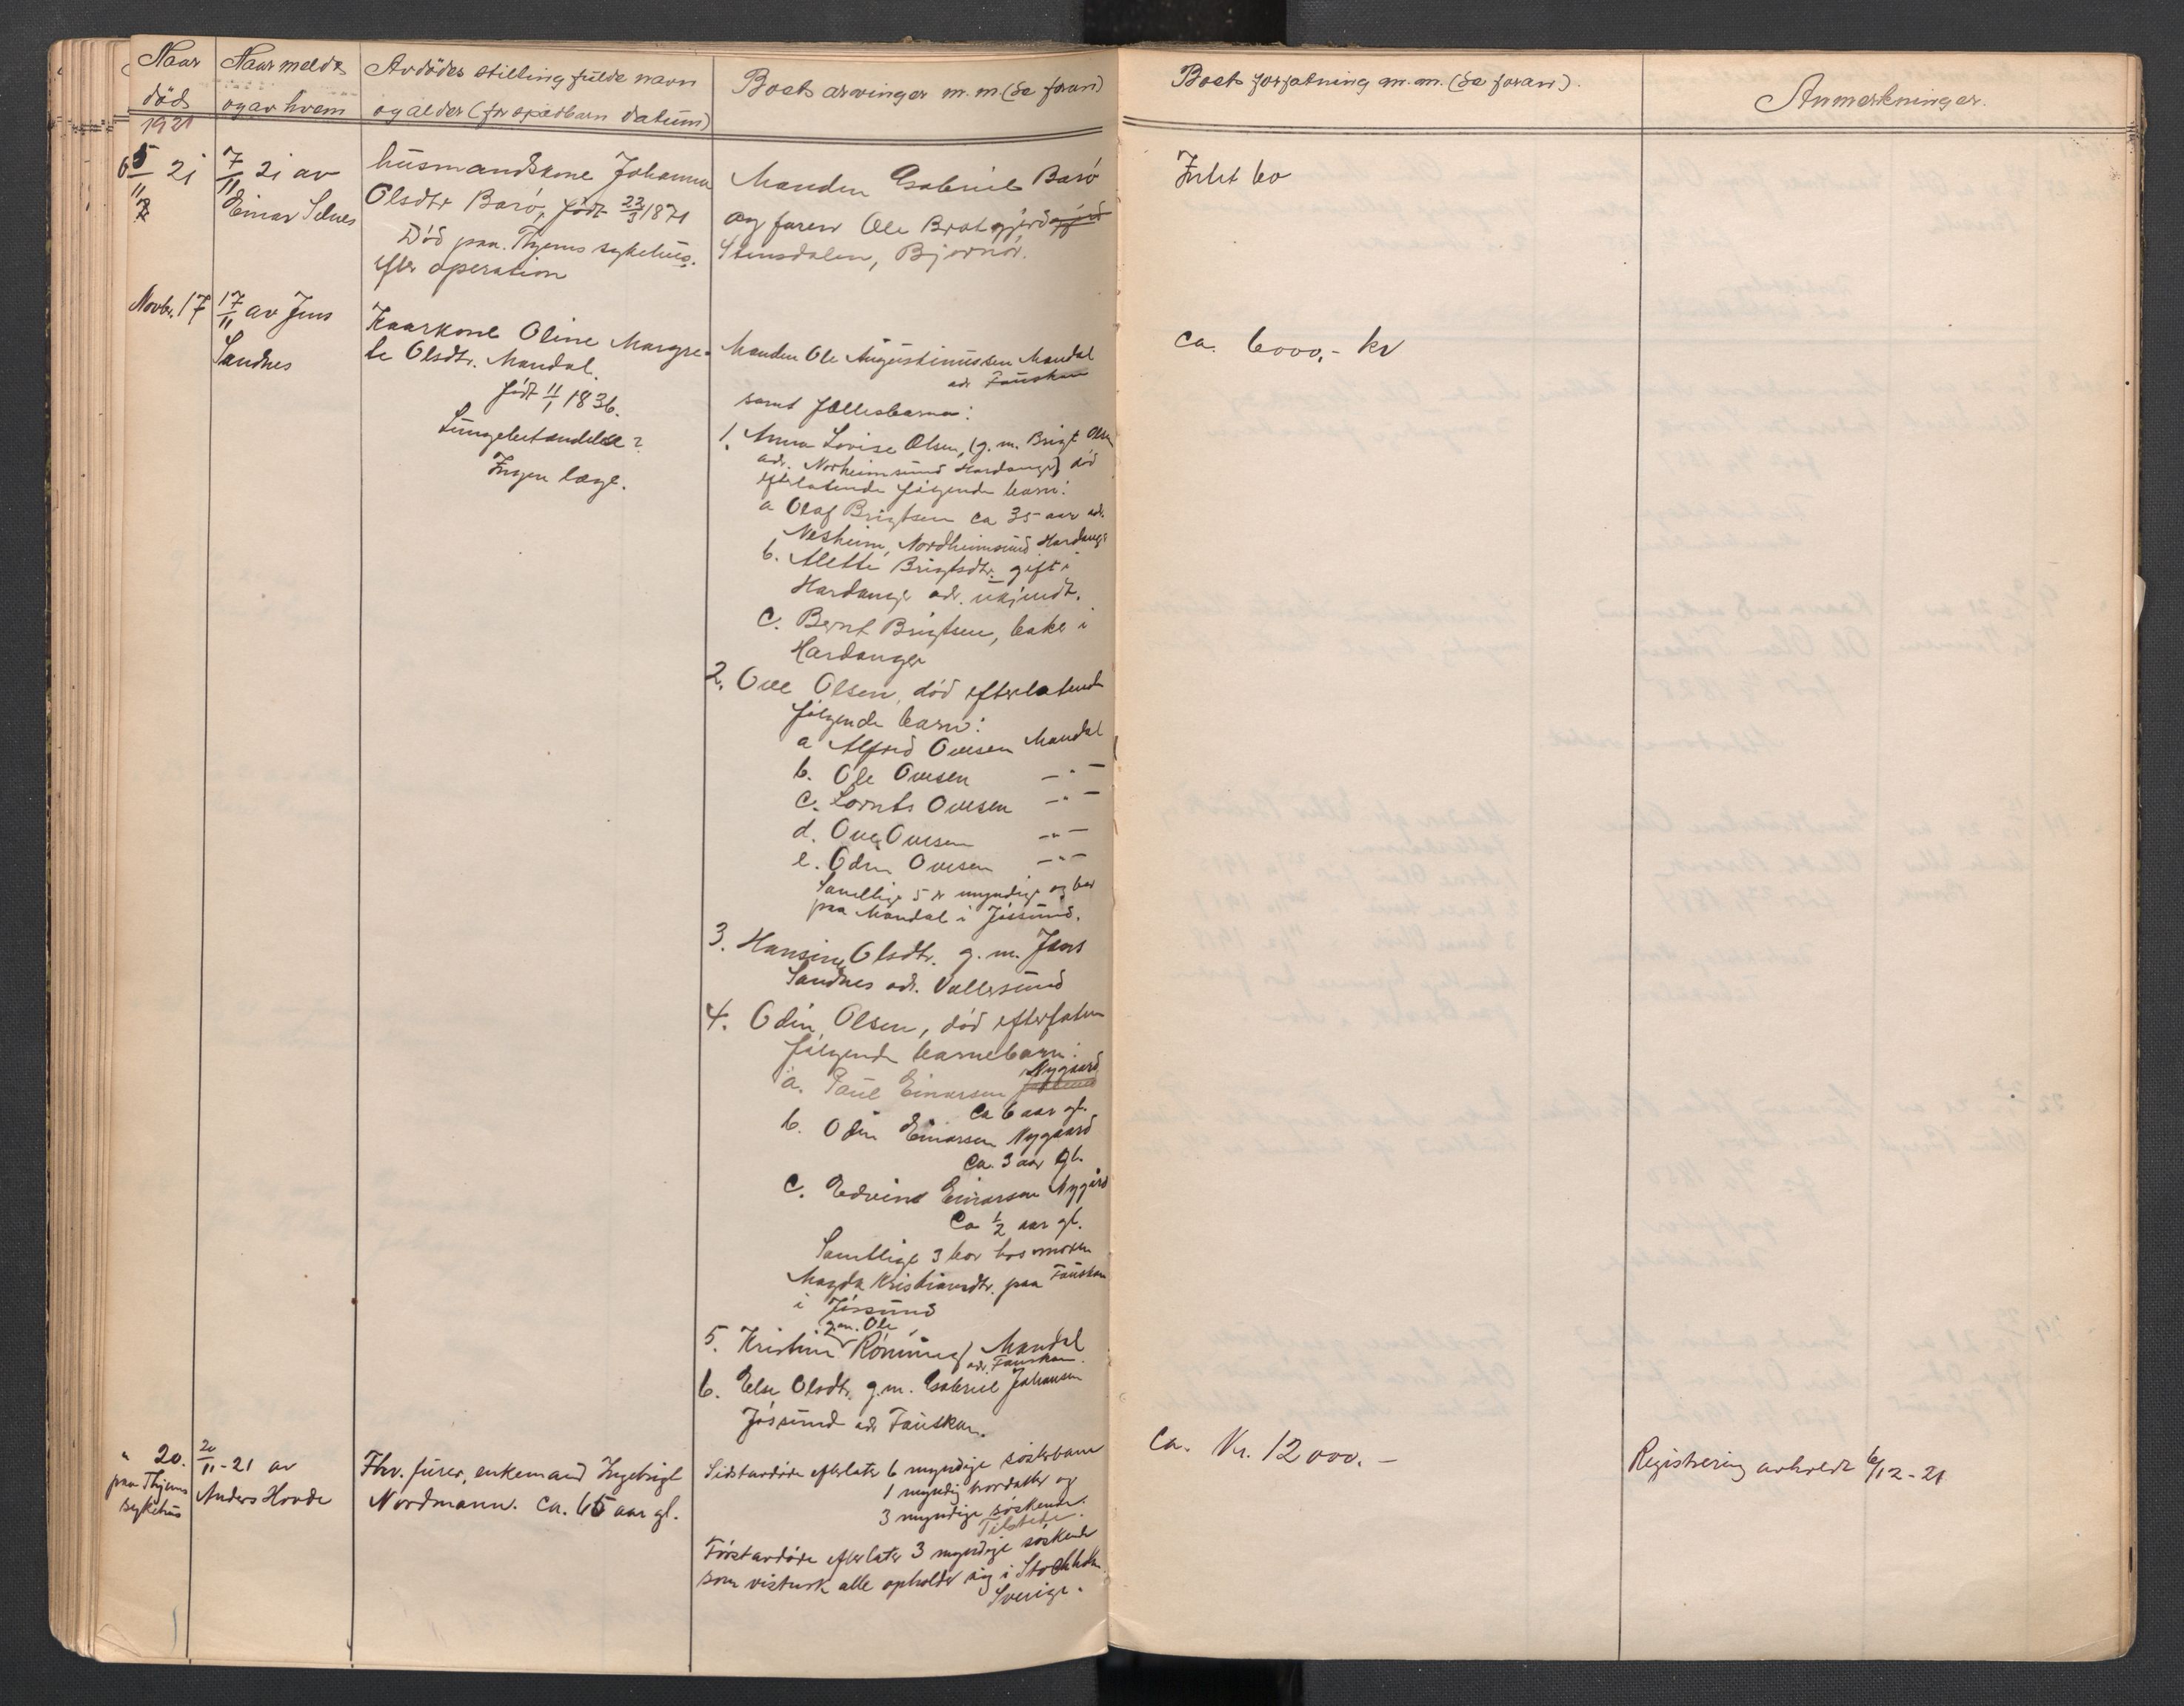 Naar
död
1921
Naar meldt
og av hvem
Avdödes stilling fulde navn
og alder (for spædbarn datum)
Boets arvinger m. m. (Se foran)
Boets forfatning m. m. (Se foran).
Anmerkninger.
5/11 21
7/11 21 av
Einar Selnes
husmandskone Johanna
Olsdtr Barö, födt 22/3 1871
Död paa Thjems sykehus.
efter operation
Manden Gabriel Barö
og faren Ole Bratgjerd
Stensdalen, Bjørnör.
Intet bo
Novbr. 17
17/11 av Jens
Sandnes
Kaarkone Oline Margre-
te Olsdtr. Mandal.
födt 11/1 1836.
Lungebetændelse?
Ingen læge.
Manden Ole Augustinussen Mandal
adr Fauskan
samt fællesbarna:
1. Anna Lovise Olsen, (g. m. Brigt Olsen
adr. Norheimsund Hardanger) död
efterlatende fölgende barn:
a Olaf Brigtsen ca 35 aar adr.
Nesheim, Nordheimsund Hardanger
b. Alette Brigtsdtr. gift i
Hardanger adr. ukjendt.
c. Bernt Brigtsen, baker i
Hardanger
2. Ove Olsen, död efterlatende
fölgende barn:
a Alfred Ovesen Mandal
b. Ole Ovesen —"—
c. Lornts Ovesen —"—
d. Ove Ovesen —"—
e. Odin Ovesen —"—
Samtlige 5 er myndige og bor
paa Mandal i Jössund.
3. Hansine Olsdtr. g. m. Jens
Sandnes adr. Vallersund
4. Odin Olsen, död efterlaten
fölgende barnebarn:
a. Paul Einarsen Nygaard
ca 6 aar gl.
b. Odin Einarsen Nygaard
ca. 3 aar gl.
c. Edvind Einarsen Nygård
ca 1/2 aar gl.
Samtlige 3 bor hos moren
Magda Kristiansdtr. paa Fauskan
i Jössund
g.m. Ole
5. Kristine Rönning, Mandal
adr. Fauskan.
6. Else Olsdtr. g. m. Gabriel Johansen
Jössund adr Fauskan.
ca. 6000,- kr
" 20.
paa Thjems
sykehus
20/11 - 21 av
Anders Hovde
Fhv. furer, enkemand Ingebrigt
Nordmann. ca. 65 aar gl.
Sidstavdöde efterlater 6 myndige sösterbarn
1 myndig brordatter og
3 myndige söskende.
Tilstede.
Förstavdöde efterlater 3 myndige söskende
som vistnok alle opholder sig i Stockholm
Sverige.
Ca. Kr. 12000.-
Registrering avholdt 6/12 - 21